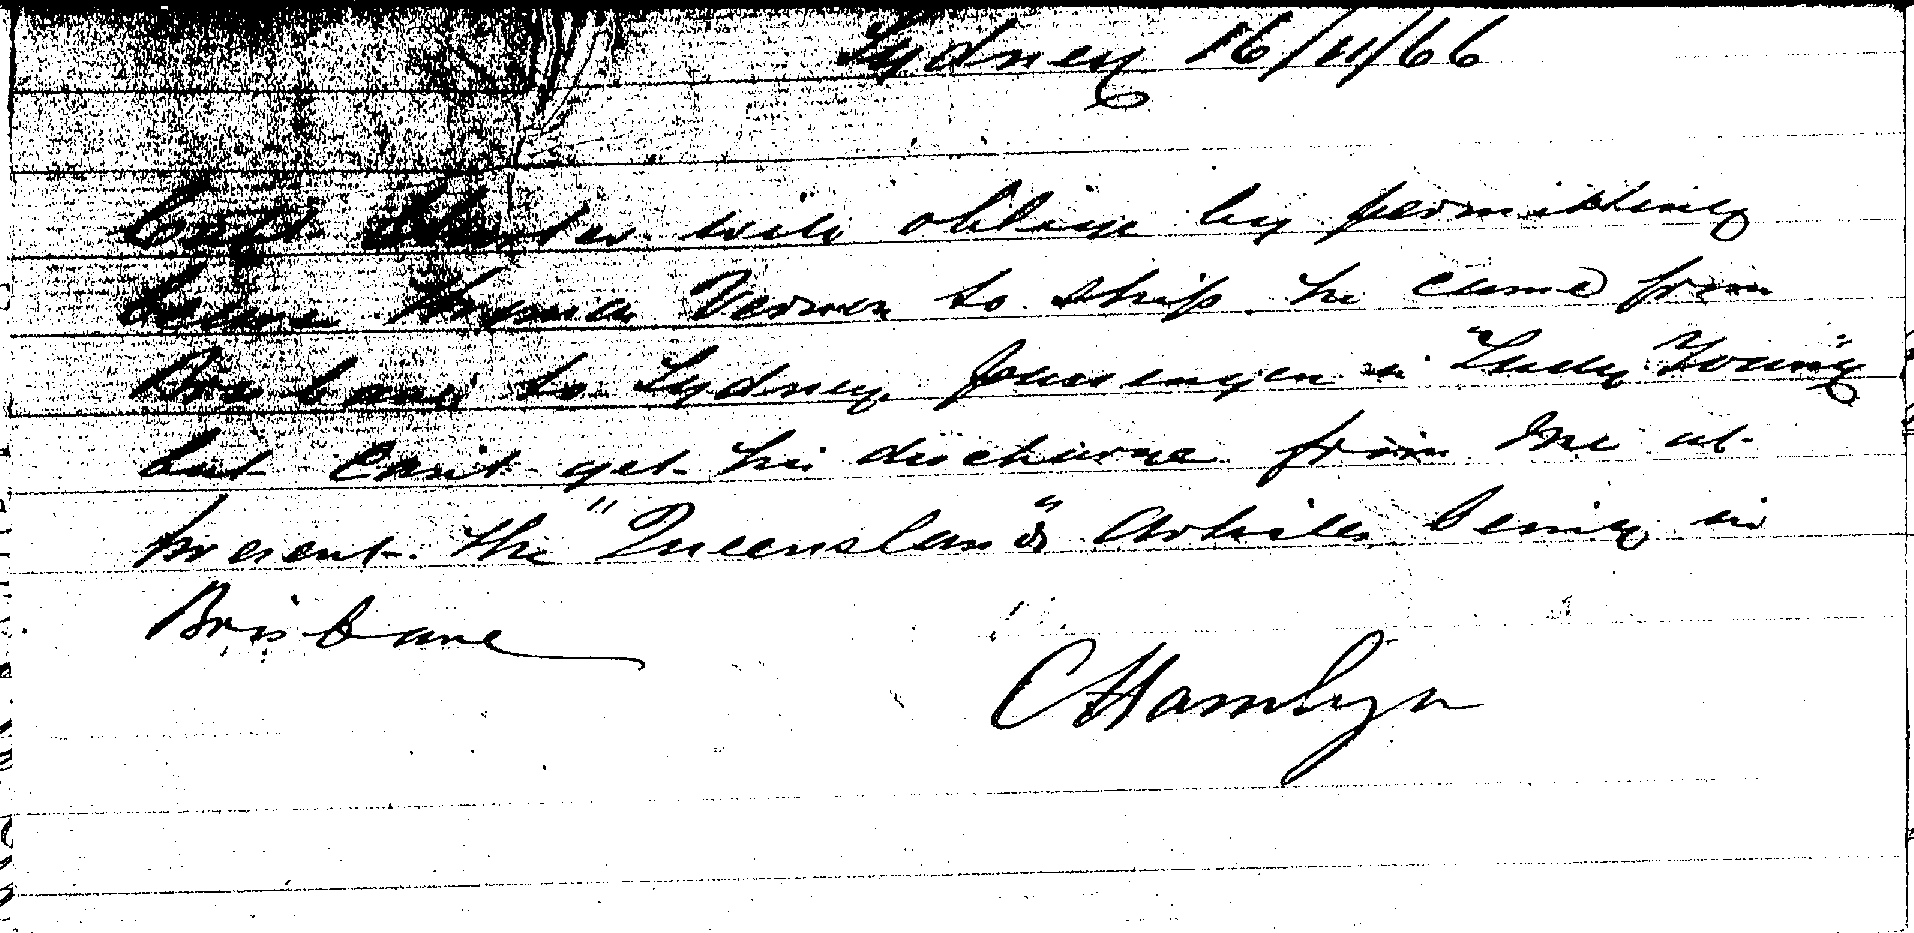 Sydney 16/11/66
Capt will oblige by permitting
Thomas Vernon to ship he came from
Brisbane to Sydney passenger in "Lady Young"
but Can't get his discharge from me at
present. the "Queensland's" Articles being in
Brisbane
C Hamlyn